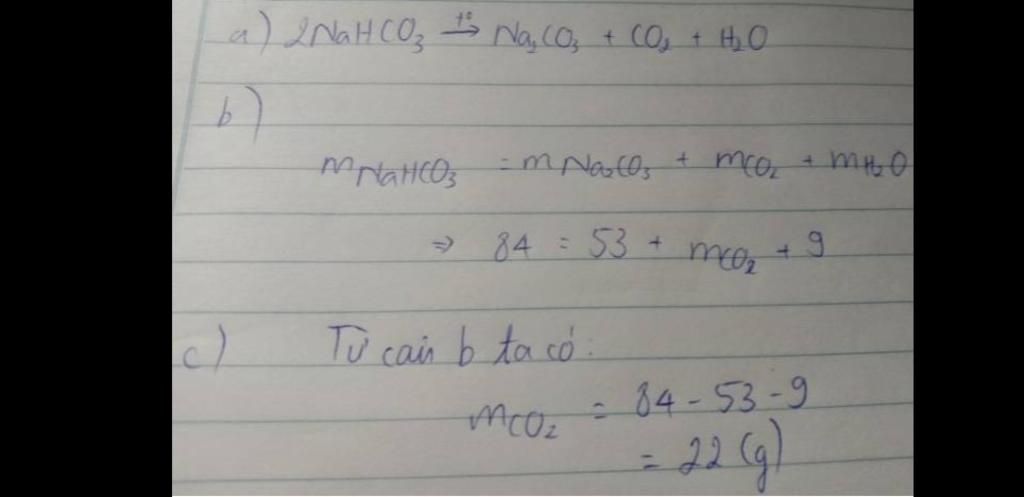 a) 2NaHCO₃ →t° Na₂CO₃ + CO₂ + H₂O
b)
mNaHCO₃ = mNa₂CO₃ + mCO₂ + mH₂O
⇒ 84 = 53 + mCO₂ + 9
c) Từ câu b ta có:
mCO₂ = 84 - 53 - 9
= 22 (g)